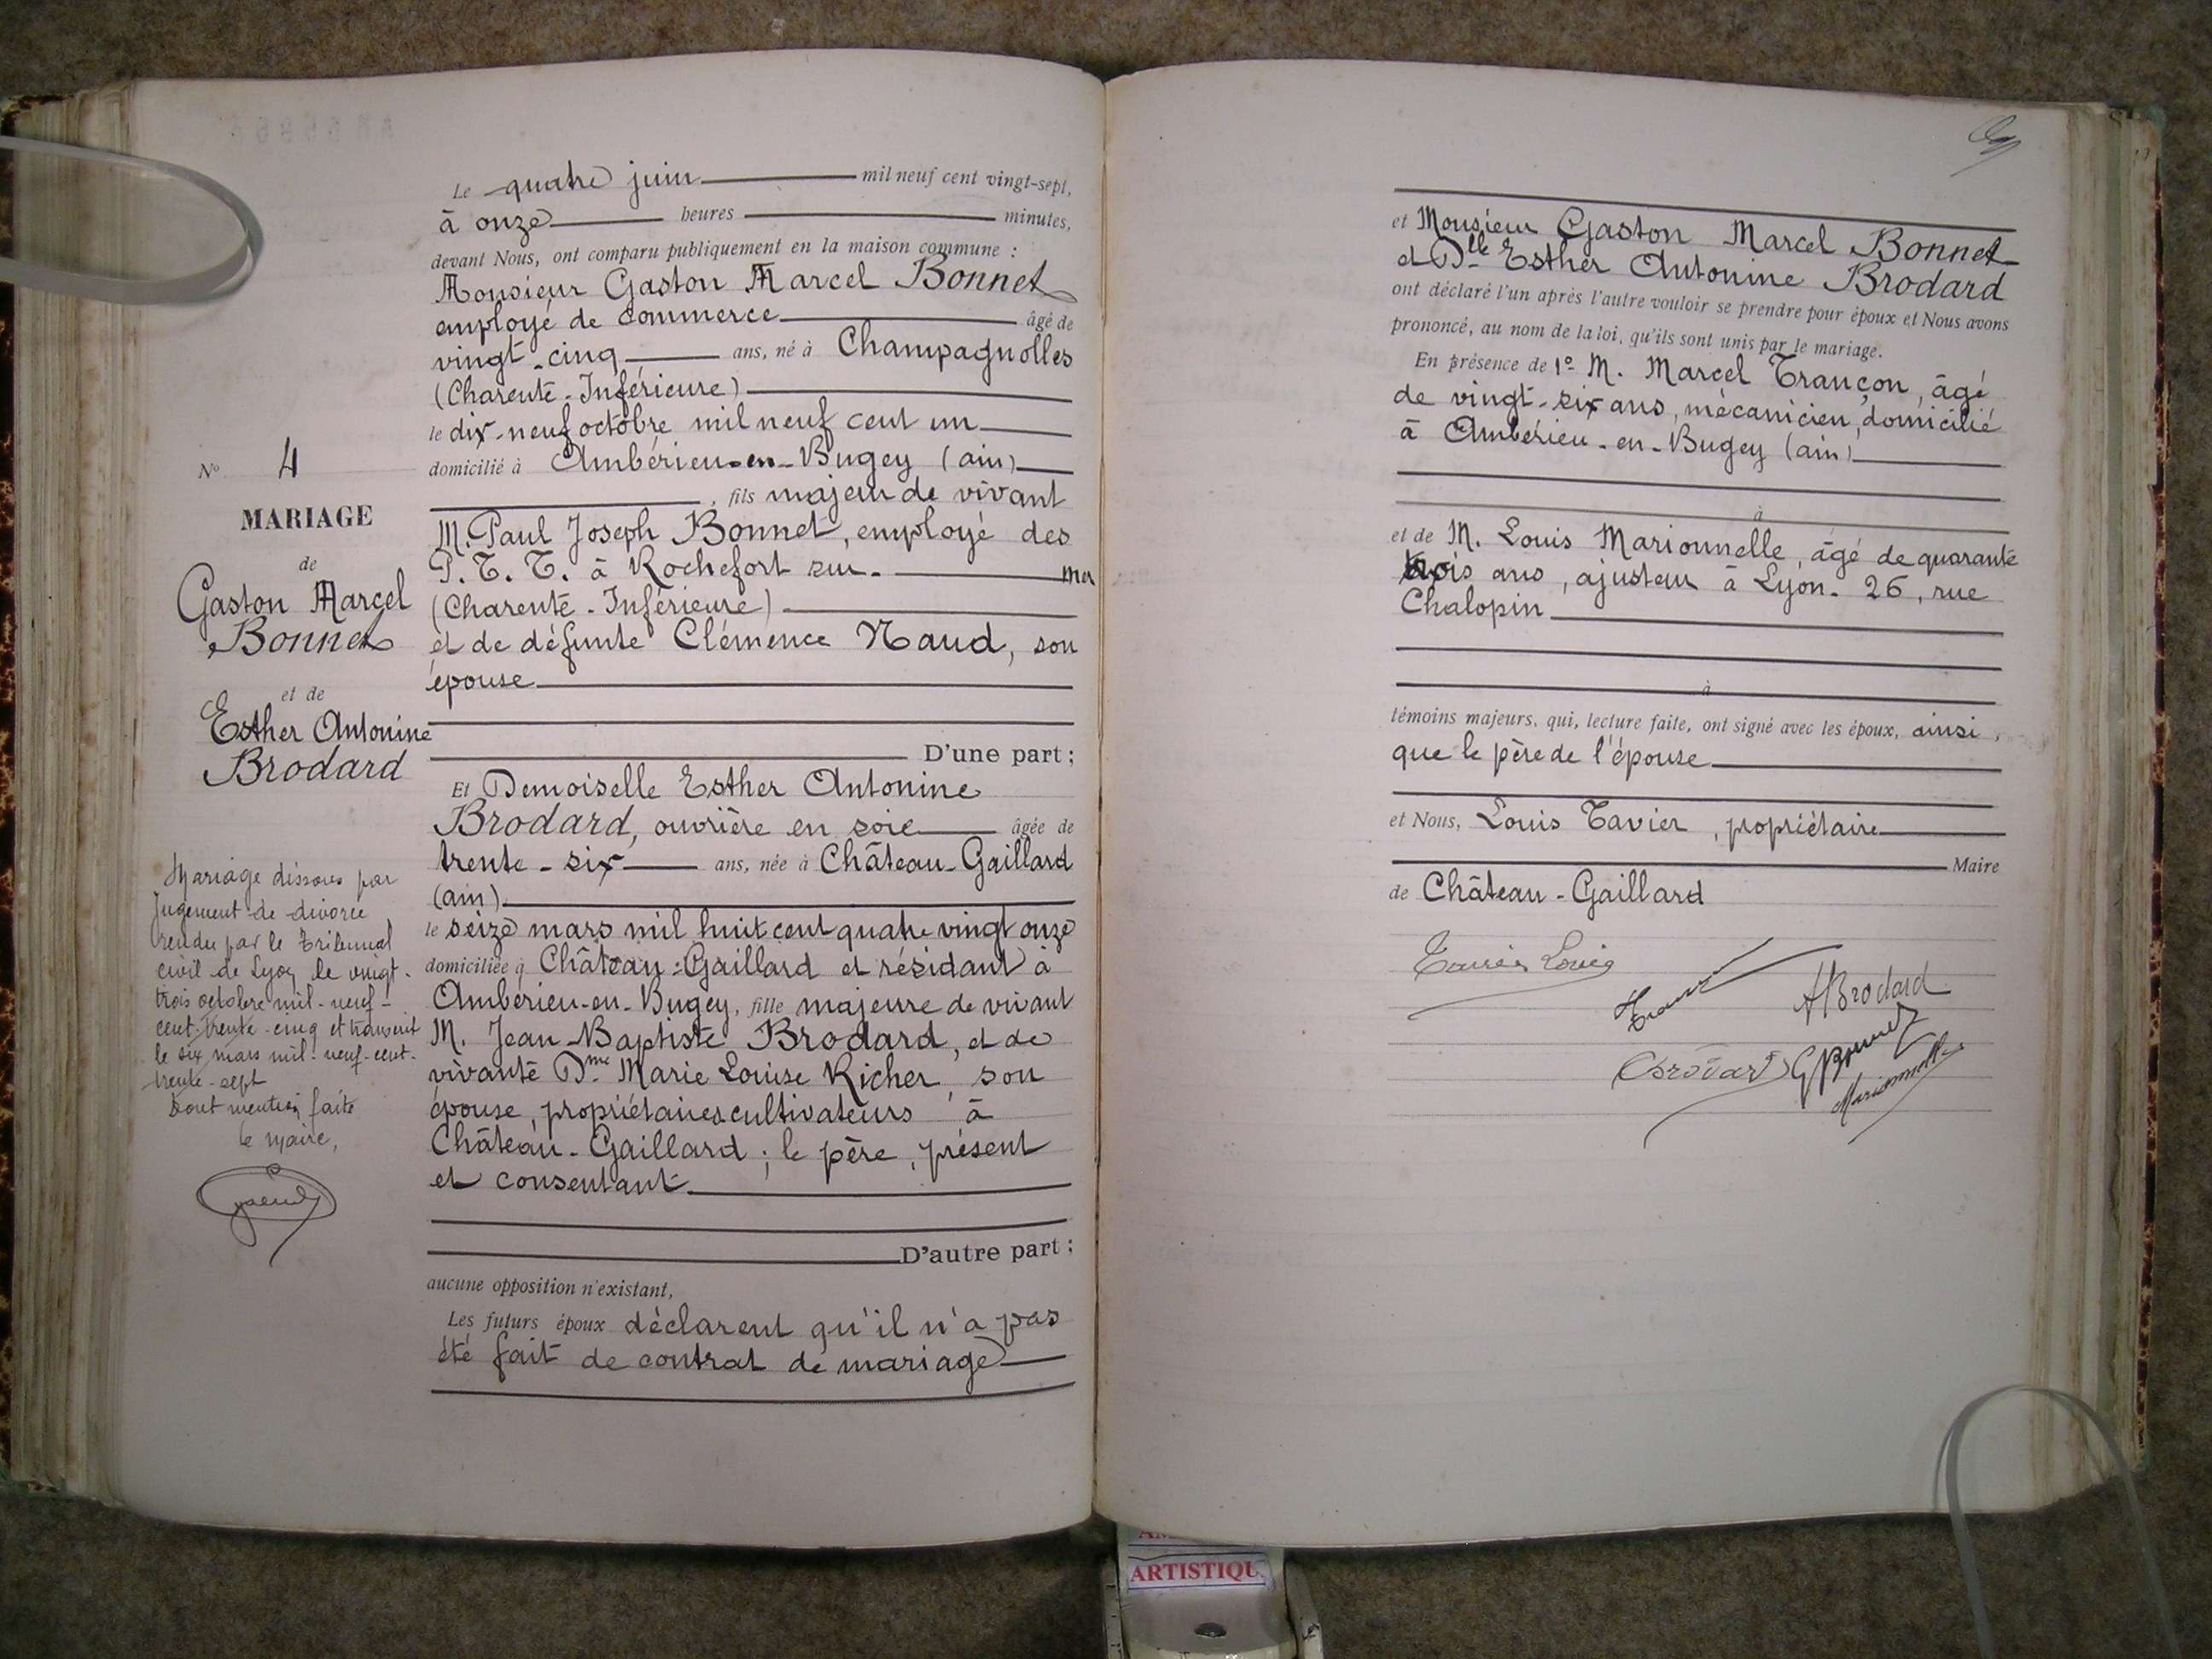 Le quatre juin mil neuf cent vingt-sept,
à onze heures minutes,
devant Nous, ont comparu publiquement en la maison commune :
Monsieur Gaston Marcel Bonnet
employé de commerce âgé de
vingt-cinq ans, né à Champagnolles
(Charente-Inférieure)
le dix-neuf octobre mil neuf cent un
domicilié à Ambérieu-en-Bugey (ain)
, fils majeur de vivant
M. Paul Joseph Bonnet, employé des
P.T.T. à Rochefort sur-mer
(Charente-Inférieure)
et de défunte Clémence Naud, son
épouse
D'une part ;
Et Demoiselle Esther Antonine
Brodard, ouvrière en soie âgée de
trente-six ans, née à Château-Gaillard
(ain)
le seize mars mil huit cent quatre vingt onze
domiciliée à Château-Gaillard et résidant à
Ambérieu-en-Bugey, fille majeure de vivant
M. Jean-Baptiste Brodard, et de
vivante Dme Marie Louise Richer, son
épouse, propriétaires cultivateurs à
Château-Gaillard ; le père, présent
et consentant
D'autre part ;
aucune opposition n'existant,
Les futurs époux déclarent qu'il n'a pas
été fait de contrat de mariage
No 4
MARIAGE
de
Gaston Marcel
Bonnet
et de
Esther Antonine
Brodard
Mariage dissous par
Jugement de divorce
rendu par le Tribunal
civil de Lyon le vingt-
trois octobre mil-neuf-
cent-trente-cinq et transcrit
le six mars mil-neuf-cent-
trente-sept
Dont mention faite
le Maire,
et Monsieur Gaston Marcel Bonnet
et Dlle Esther Antonine Brodard
ont déclaré l'un après l'autre vouloir se prendre pour époux et Nous avons
prononcé, au nom de la loi, qu'ils sont unis par le mariage.
En présence de 1º M. Marcel Trançon, âgé
de vingt-six ans, mécanicien, domicilié
à Ambérieu-en-Bugey (ain)
à
et de M. Louis Marionnelle, âgé de quarante
trois ans, ajusteur à Lyon-26, rue
Chalopin
à
témoins majeurs, qui, lecture faite, ont signé avec les époux, ainsi
que le père de l'épouse
et Nous, Louis Tavier, propriétaire
Maire
de Château-Gaillard
Louis
ABrodard
Brodard GBonnet
Marionnelle
ARTISTIQU